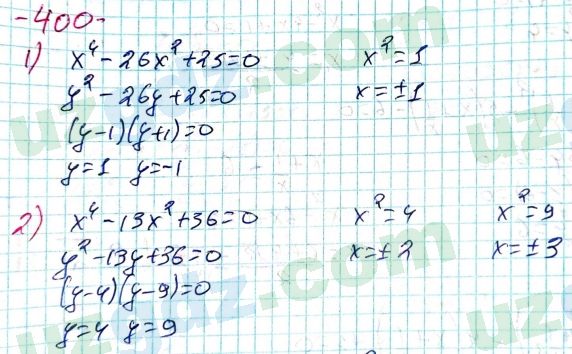 -400-
1) x⁴-26x²+25=0 x²=1
y²-26y+25=0 x=±1
(y-1)(y+1)=0
y=1 y=-1
2) x⁴-13x²+36=0 x²=4 x²=9
y²-13y+36=0 x=±2 x=±3
(y-4)(y-9)=0
y=4 y=9